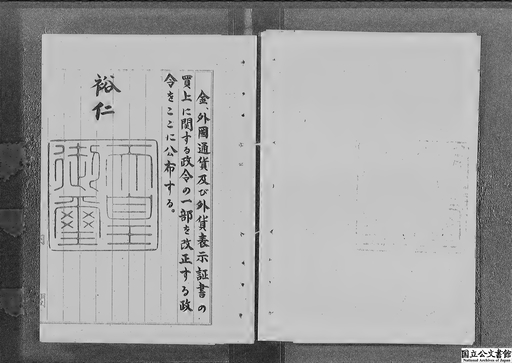 金、外國通貨及び外貨表示証書の
買上に関する政令の一部を改正する政
令をここに公布する。
裕仁
天皇
御璽
国立公文書館
National Archives of Japan